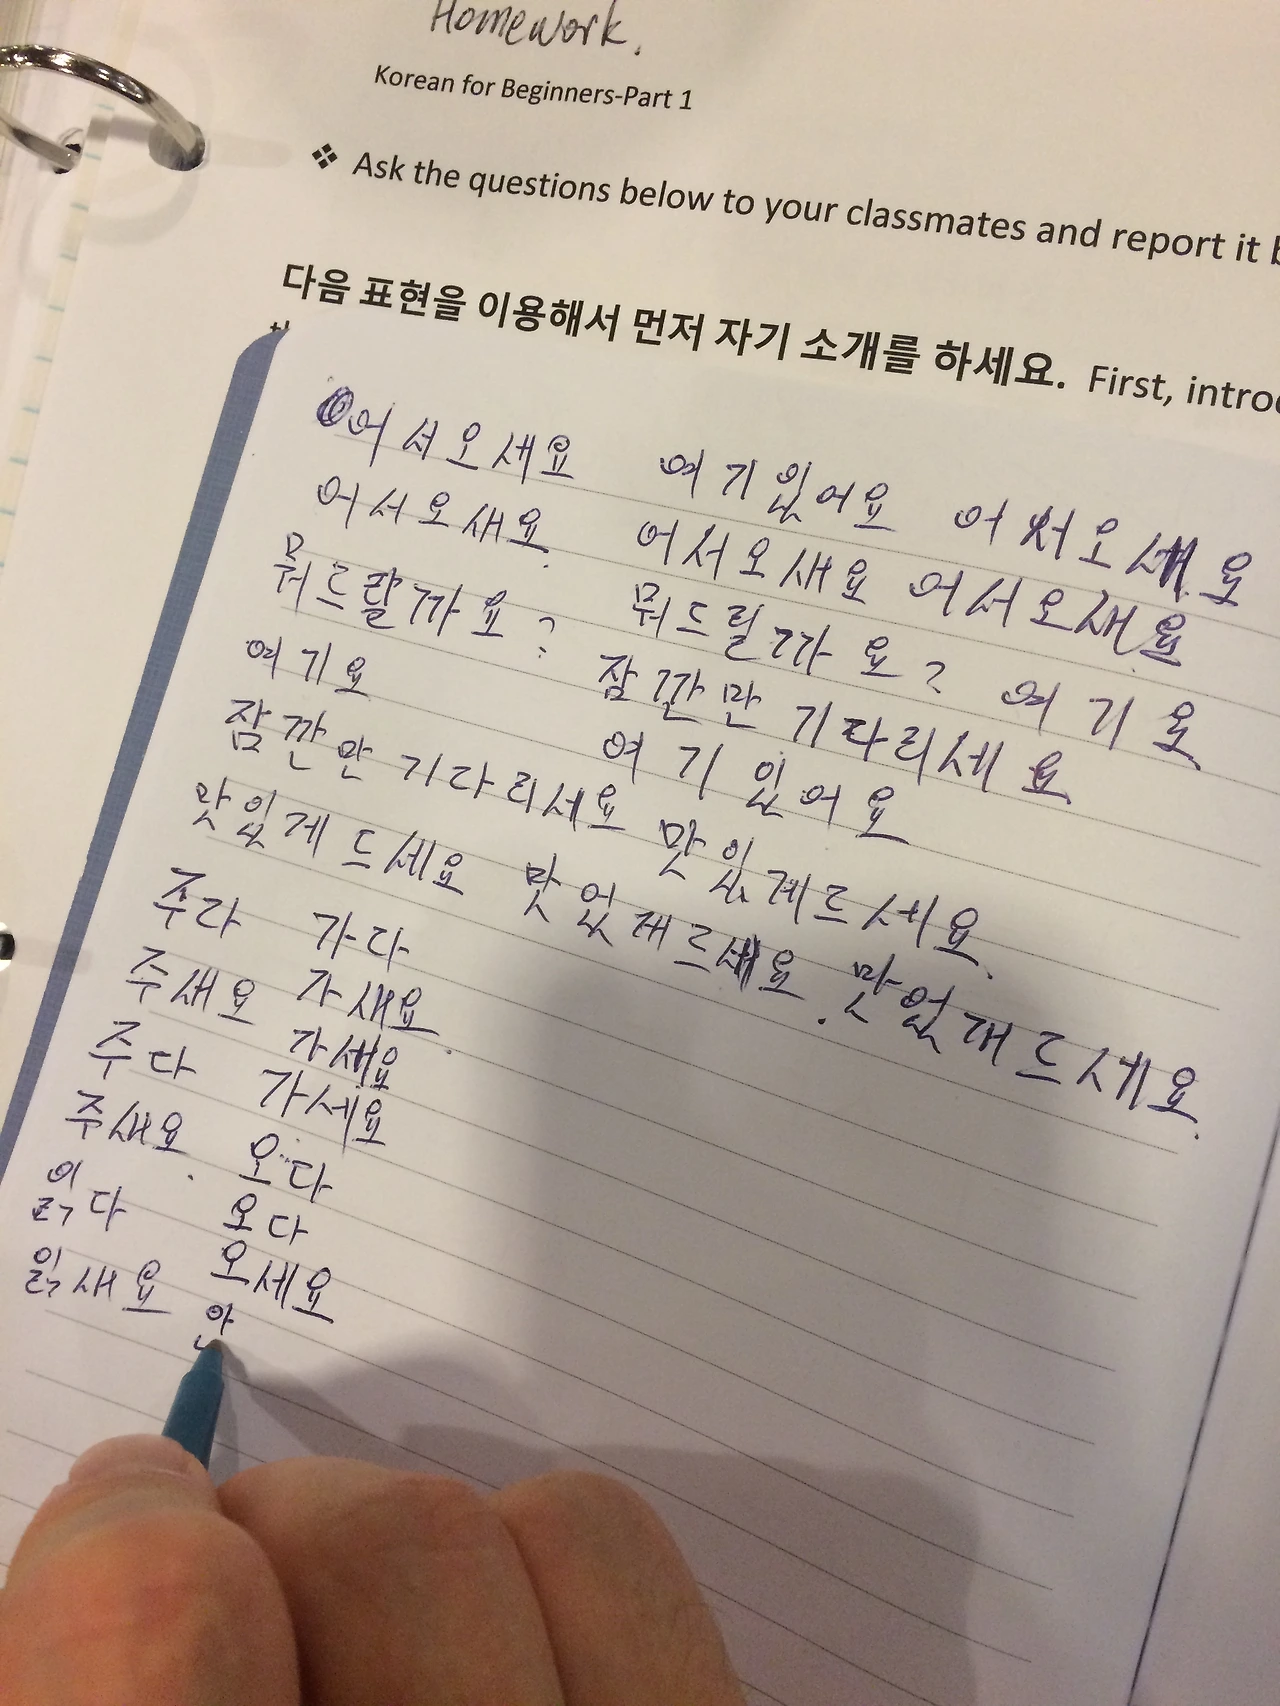 Homework.
Korean for Beginners-Part 1
❖ Ask the questions below to your classmates and report it b
다음 표현을 이용해서 먼저 자기 소개를 하세요. First, introd
어서오세요 여기있어요 어서오세요
어서오새요. 어서오새요 어서오새요
뭐드릴까요? 뭐드릴까요? 여기요
여기요 잠깐만 기다리세요.
잠깐만 기다리서요 여기 있어요
맛있게 드세요 맛있게드세요.
맛있게드세요. 맛있개드세요.
주다 가다
주세요 가세요.
주다 가세요
주새요. 가세요
읽다 오다
읽새요 오다
오세요